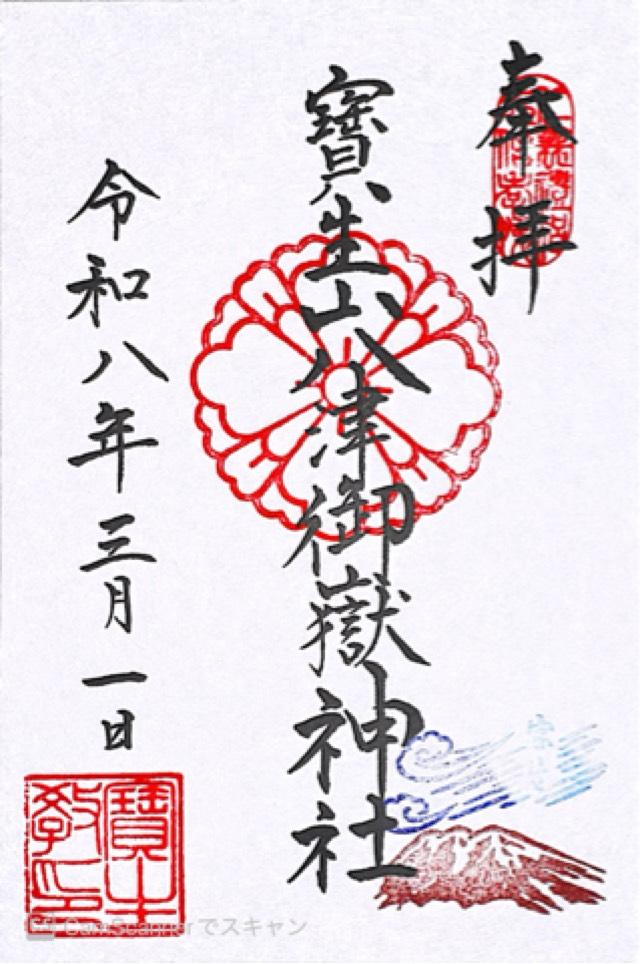 奉拝
寶生山八津御嶽神社
令和八年三月一日
CamScannerでスキャン